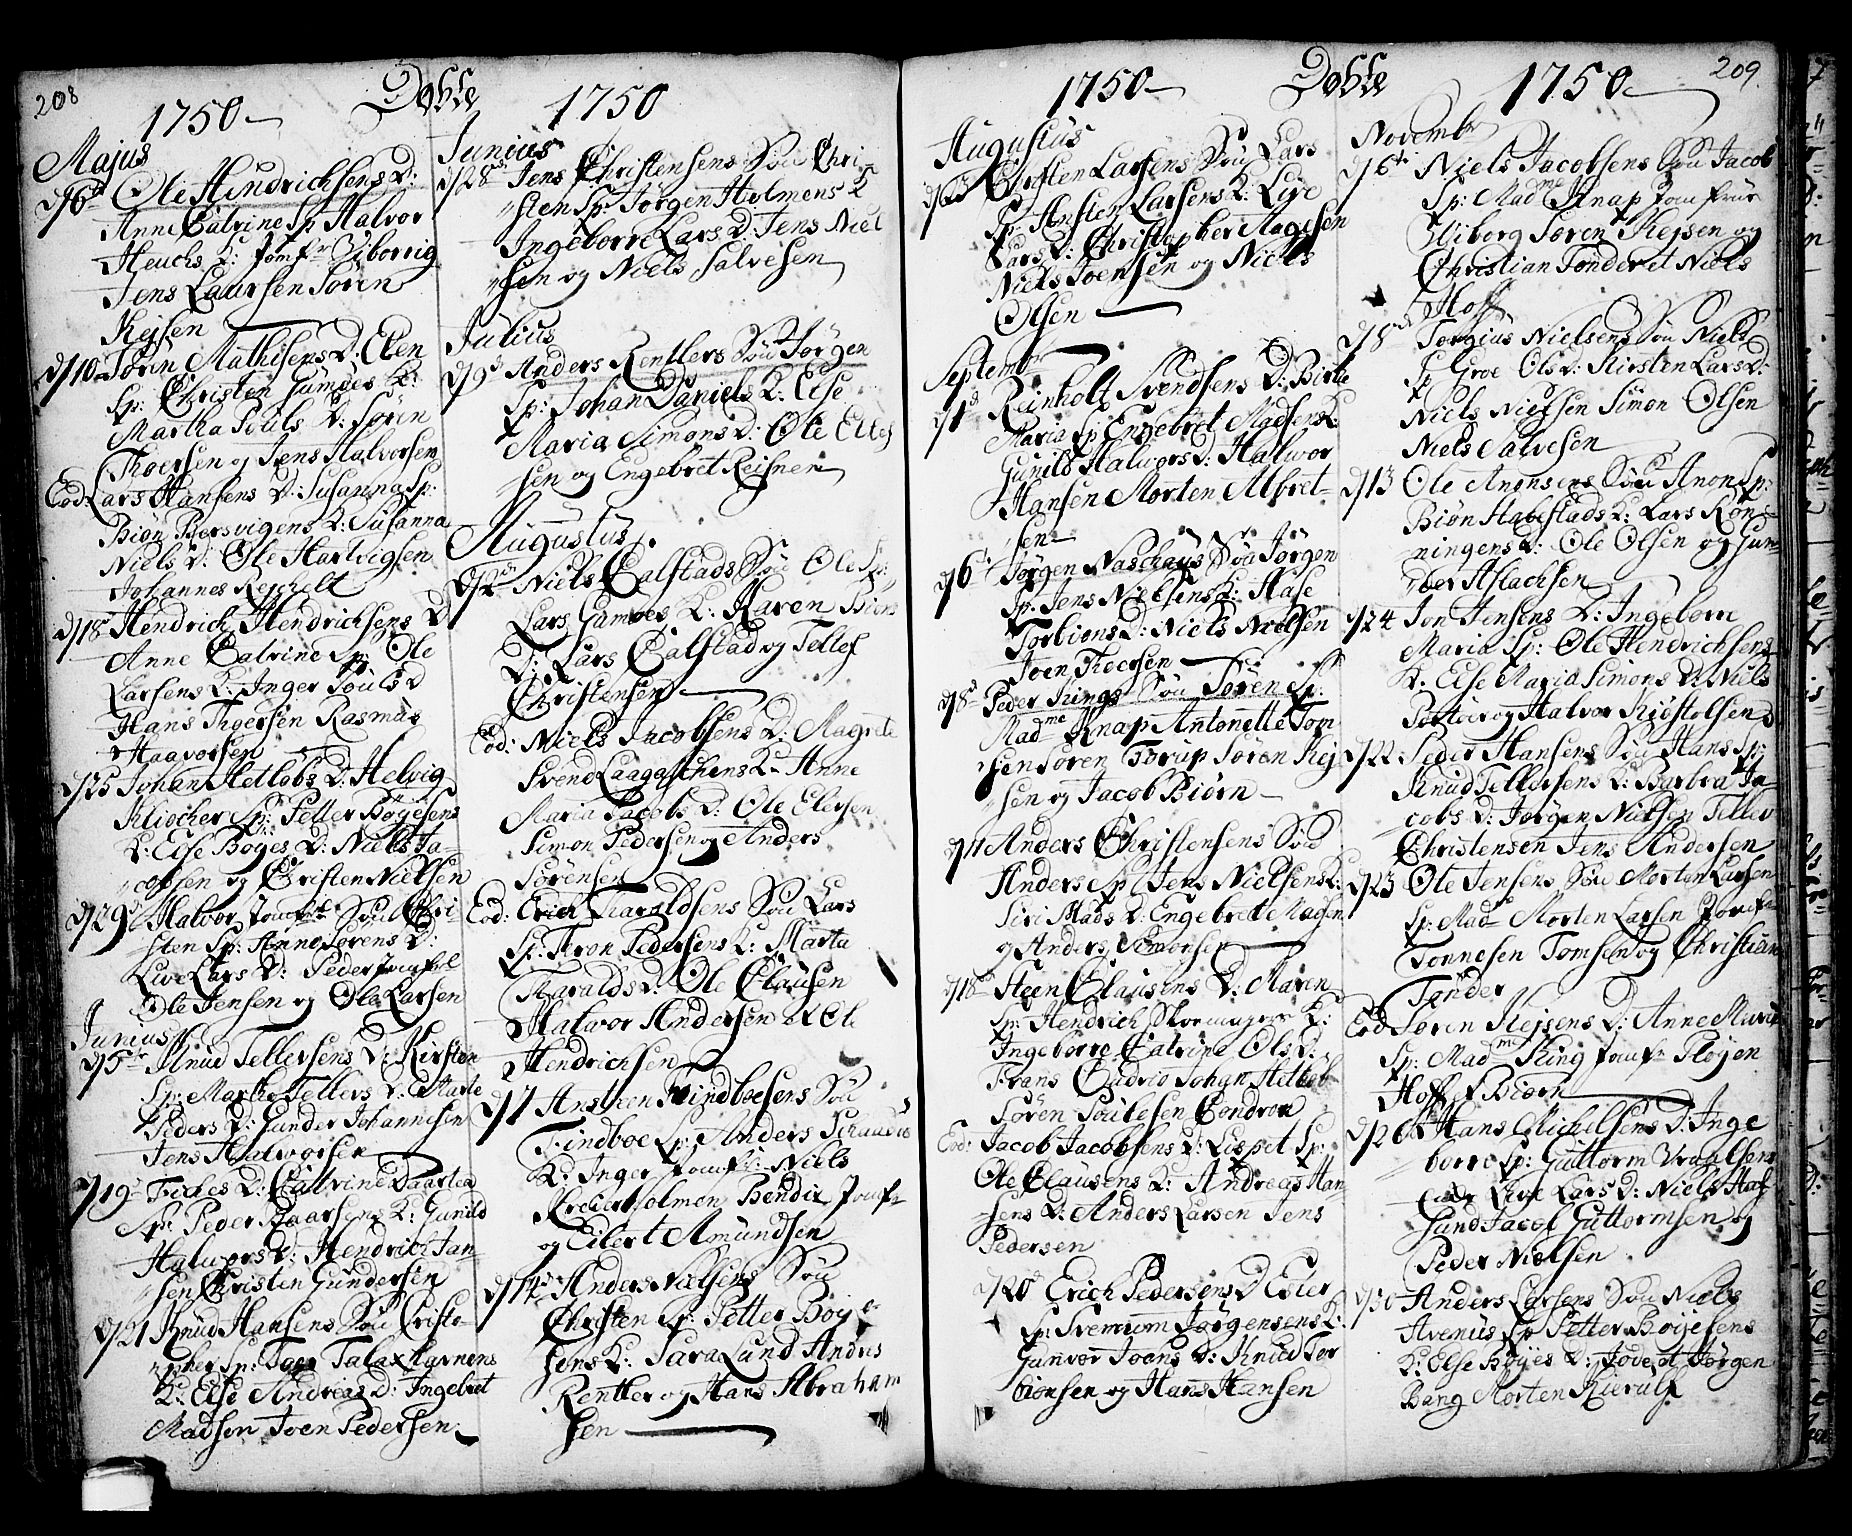 208
1750
Dobte
1750
Majus
d 6te Ole Hendrichsens D:
Anne Catrine Sp Halvor
Heuchs K: Jomfr Viborrig
Jens Laursen Sören
Kejsen
d 10 Sören Mathisens D: Elen
Sp: Christen Gumøes K:
Martha Pouls D: Sören
Thoersen og Jens Halvorsen
Eod: Lars Hansens D: Susanna Sp:
Biön Bersvigens K: Susanna
Niels D: Ole Hartvigsen
Johannes Rejchelt
d 18 Hendrich Hendrichsens D
Anne Catrine Sp: Ole
Larsens K: Inger Pouls D
Hans Thgersen Rasmus
Haavorsen
d 25 Johan Hetlobs D: Helvig
Kliocher Sp: Petter Böyesens
K: Else Böyes D: Niels Ja-
cobsen og Cristen Nielsen
d 29 Halvor Söu Chri-
sten Sp: Anne Sörens D:
Live Lars D: Peder
Ole Jensen og Ole Larsen
Junius
d 5te Knud Tellefsens D: Kirsten
Sp: Martha Tellefs D: Marte
Peders D: Gunder Johannesen
Jens Halvorsen
d 19 D: Catrine Daartea
Sp: Peder Baarsens K: Gunild
Halvors D: Hendrich Jan-
sen Christen Gundersen
d 21 Knud Hansens Söu Cristo-
pher Sp: Havnens
K: Else Andreas D: Ingebret
Madsen Joen Pedersen
Junius
d 28 Jens Christensens Söu Chri-
sten Sp: Jørgen Holmens K
Ingeborre Lars D: Jens Niel
sen og Niels Salvesen
Julius
d 9 Anders Rentlers Söu Jørgen
Sp: Johan Daniels K: Else
Maria Simons D: Ole Ellef
sen og Engebret Reisner
Augustus
d 2 Niels Calstads Söu Ole Sp:
Lars Gamøes K: Karen Biöns
D: Lars Calstad og Tellef
Christensen
Eod: Niels Jacobsens D: Magrete
Svend Laagassens K: Anne
Maria Jacobs D: Ole Elefsen
Simon Pedersen og Anders
Sörensen
Eod: Erich Haraldsens Söu Lars
Sp: Aron Pedersens K: Marta
Haralds D: Ole Clausen
Halvor Andersen et Ole
Hendrichsen
d 7 Ansten Findboesens Söu
Findboe Sp: Anders Schaudis
K: Inger Jomfr: Niels
Kreierholmen Bendix Jomfr
og Eilert Amundsen
d 14 Anders Nielsens Söu
Christen Sp: Petter Böye-
sens K: Sara Lund Anders
Rentler og Hans Abraham
sen
1750
Dobte
1750
209
Augustus
d 23 Cirsten Larsens Söu Lars
Sp Ansten Larsens K: Live
Lars D: Christopher Aagesen
Niels Joensen og Niels
Olsen
Septembr
d 1 Reinholt Svendsens D: Birte
Maria Sp: Engebret Madsens K:
Gunild Halvors D: Halvor
Hansen Morten Albret-
sen
d 6 Jørgen Naschaus Söu Jørgen
Sp: Jens Nielsens K: Aase
Torbiöns D: Niels Nielsen
Joen Thoersen
d 8 Peder Kings Söu Sören Sp:
Madme Knap Antonette Tom
sen Sören Torup Sören Kej
sen og Jacob Biörn
d 11 Anders Christensens Söu
Anders Sp: Jens Nielsens K:
Siri Mads D: Engebret Magsen
og Anders Simonsen
d 18 Steen Clausens D: Maren
Sp: Hendrich Skoemagers K:
Ingeborre Catrine Ols D:
Frans Ludvig Johan Hetlob
Sören Poulesen Condron
Eod: Jacob Jacobsens D: Lispet Sp:
Ole Clausens K: Andreas Han
sens D: Anders Larsen Jens
Pedersen
d 20 Erich Pedersens D Ester
Sp: Jørgensens K:
Gunvor Joens D: Knud Tor
biönsen og Hans Hansen
Novembr
d 6te Niels Jacobsens Söu Jacob
Sp: Madme Knap Jomfrue
Wiborg Sören Kejsen og
Christian Tønder et Niels
Hoff
d 8 Torgius Nielsens Söu Niels
Sp Groe Ols D: Kirsten Lars D:
Niels Nielsen Simon Olsen
Niels Salvesen
d 13 Ole Anonsens Söu Anon Sp:
Biön Habestads K: Lars Rön-
ningens D: Ole Olsen og Gun-
der Aslachsen
d 24 Jon Jensens D: Ingeborre
Maria Sp: Ole Hendrichsens
K: Else Maria Simons D: Niels
Porteir og Halvor Kiöstolsen
d 22 Peder Hansens Söu Hans Sp:
Knud Tellefsens K: Barbra Ja
cobs D: Jørgen Nielsen Tellev
Christensen Jens Andersen
d 23 Ole Jensens Söu Morten Larsen
Sp: Mad Morten Larsen Jomfr
Tønnesen Tomsen og Christian
Tønder
Eod Sören Kejsens D: Anne Maria
Sp: Madme King Jomfr Plöjen
Hoff et Biörn
d 26 Hans Michelsens D: Inge
borre Sp: Guttorm Wraalsens
Live Lars D: Niels Haf
sund Jacob Guttormsen og
Peder Nielsen
d 30 Anders Larsens Söu Niels
Arenius Sp Petter Böyesens
K: Else Böyes D: Jørgen
Bang Morten Kierulf